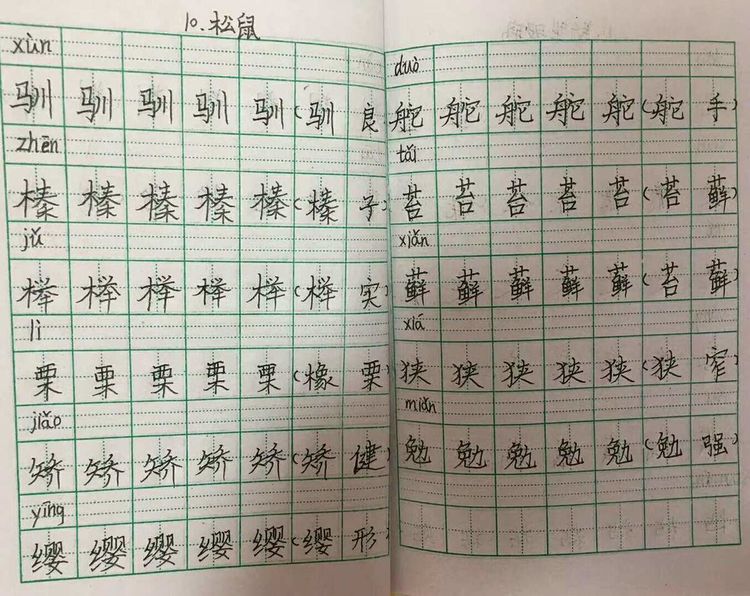 10.松鼠
xùn
驯 驯 驯 驯 驯(驯 良
zhēn
榛 榛 榛 榛 榛(榛 子
jǔ
榉 榉 榉 榉 榉(榉 实
lì
栗 栗 栗 栗 栗(橡 栗
jiǎo
矫 矫 矫 矫 矫(矫 健
yīng
缨 缨 缨 缨 缨(缨 形
duò
舵 舵 舵 舵 舵(舵 手)
tái
苔 苔 苔 苔 苔(苔 藓)
xiǎn
藓 藓 藓 藓 藓(苔 藓)
xiá
狭 狭 狭 狭 狭(狭 窄)
miǎn
勉 勉 勉 勉 勉(勉 强)